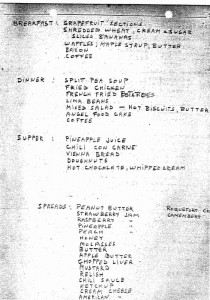 BREAKFAST: GRAPEFRUIT SECTIONS
SHREDDED WHEAT, CREAM & SUGAR
SLICED BANANAS
WAFFLES, MAPLE SYRUP, BUTTER
BACON
COFFEE
DINNER: SPLIT PEA SOUP
FRIED CHICKEN
FRENCH FRIED POTATOES
LIMA BEANS
MIXED SALAD - HOT BISCUITS, BUTTER
ANGEL FOOD CAKE
COFFEE
SUPPER: PINEAPPLE JUICE
CHILI CON CARNE
VIENNA BREAD
DOUGHNUTS
HOT CHOCOLATE, WHIPPED CREAM
SPREADS: PEANUT BUTTER ROQUEFORT CH
STRAWBERRY JAM CAMEMBERT
RASPBERRY "
PINEAPPLE "
PEACH "
HONEY
MOLASSES
BUTTER
APPLE BUTTER
CHOPPED LIVER
MUSTARD
RELISH
CHILI SAUCE
KETCHUP
CREAM CHEESE
AMERICAN "